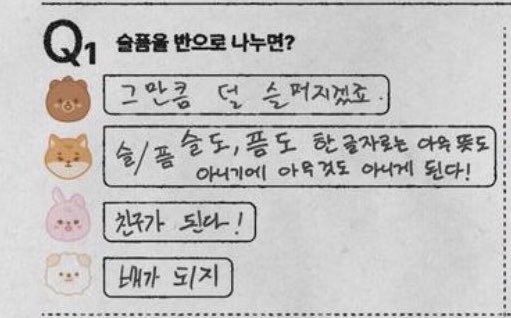 Q1 슬픔을 반으로 나누면?
그만큼 덜 슬퍼지겠죠.
슬/픔 슬도, 픔도 한 글자로는 아무 뜻도
아니기에 아무것도 아니게 된다!
친구가 된다!
배가 되지